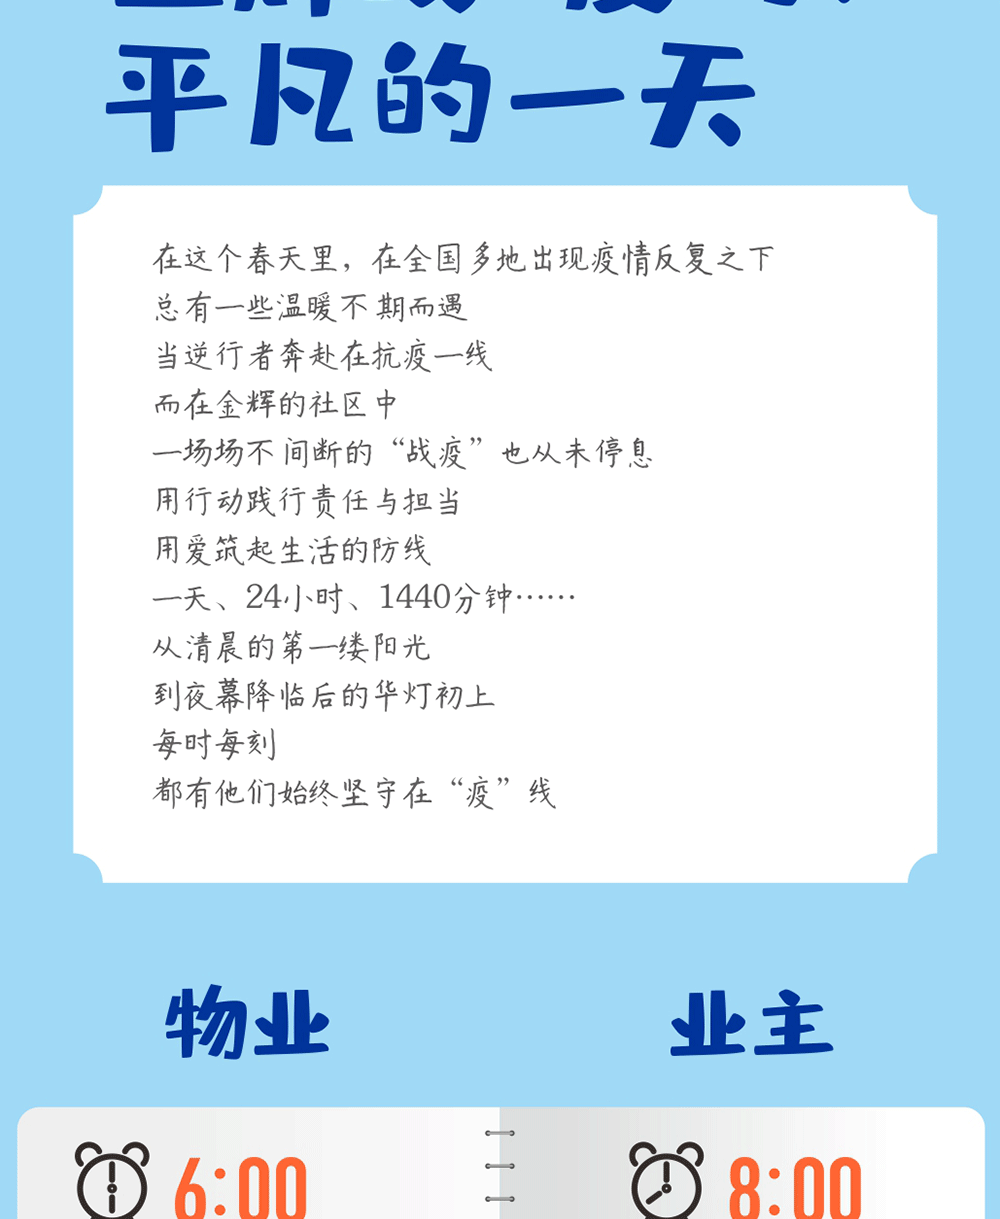 平凡的一天
在这个春天里，在全国多地出现疫情反复之下
总有一些温暖不期而遇
当逆行者奔赴在抗疫一线
而在金辉的社区中
一场场不间断的“战疫”也从未停息
用行动践行责任与担当
用爱筑起生活的防线
一天、24小时、1440分钟……
从清晨的第一缕阳光
到夜幕降临后的华灯初上
每时每刻
都有他们始终坚守在“疫”线
物业 业主
6:00 8:00